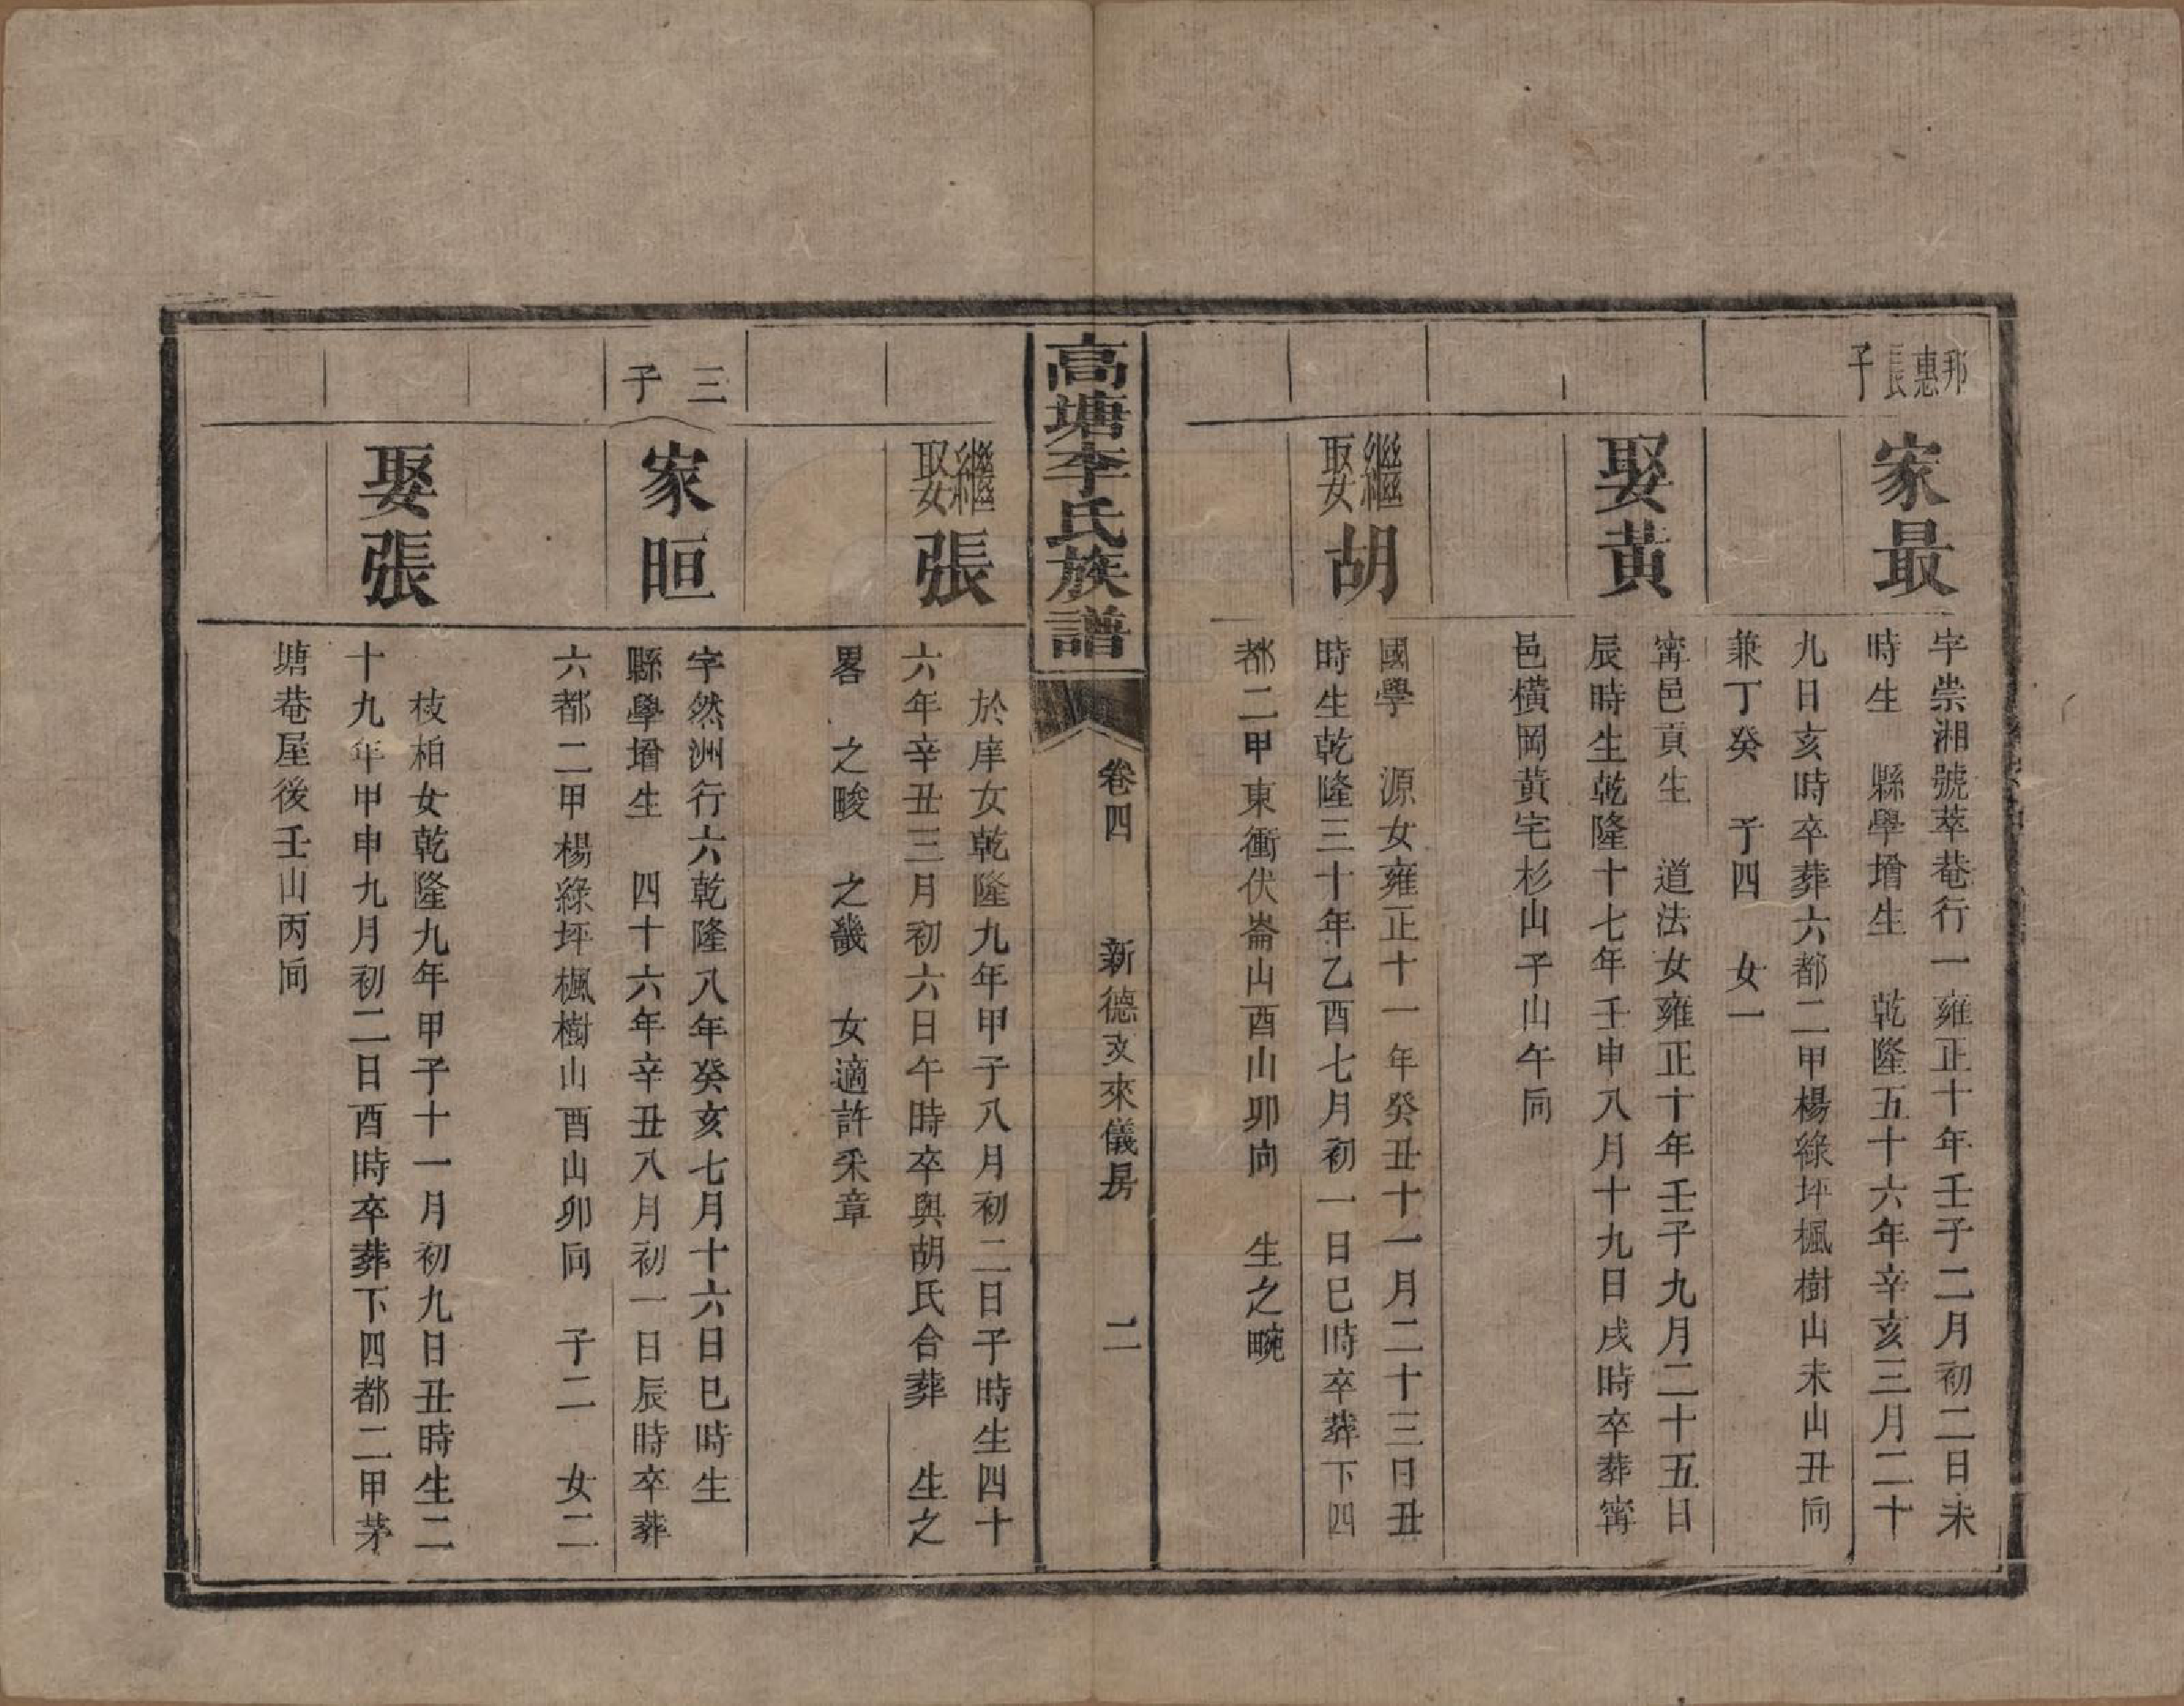 邦惠長子
家最
字崇湘號萃菴行一雍正十年壬子二月初二日未
時生　縣學增生　乾隆五十六年辛亥三月二十
九日亥時卒葬六都二甲楊綠坪楓樹山未山丑向
兼丁癸　子四　女一
娶黃
甯邑貢生　道法女雍正十年壬子九月二十五日
辰時生乾隆十七年壬申八月十九日戌時卒葬甯
邑橫岡黃宅杉山子山午向
繼娶胡
國學　源女雍正十一年癸丑十一月二十三日丑
時生乾隆三十年乙酉七月初一日巳時卒葬下四
都二甲東衝伏崙山酉山卯向　生之畹
高塘李氏族譜
卷四　新德支來儀房　二
繼娶張
於庠女乾隆九年甲子八月初二日子時生四十
六年辛丑三月初六日午時卒與胡氏合葬　生之
畧　之畯　之畿　女適許采章
三子
家晅
字然洲行六乾隆八年癸亥七月十六日巳時生
縣學增生　四十六年辛丑八月初一日辰時卒葬
六都二甲楊綠坪楓樹山酉山卯向　子二　女二
娶張
枝柏女乾隆九年甲子十一月初九日丑時生二
十九年甲申九月初二日酉時卒葬下四都二甲茅
塘菴屋後壬山丙向